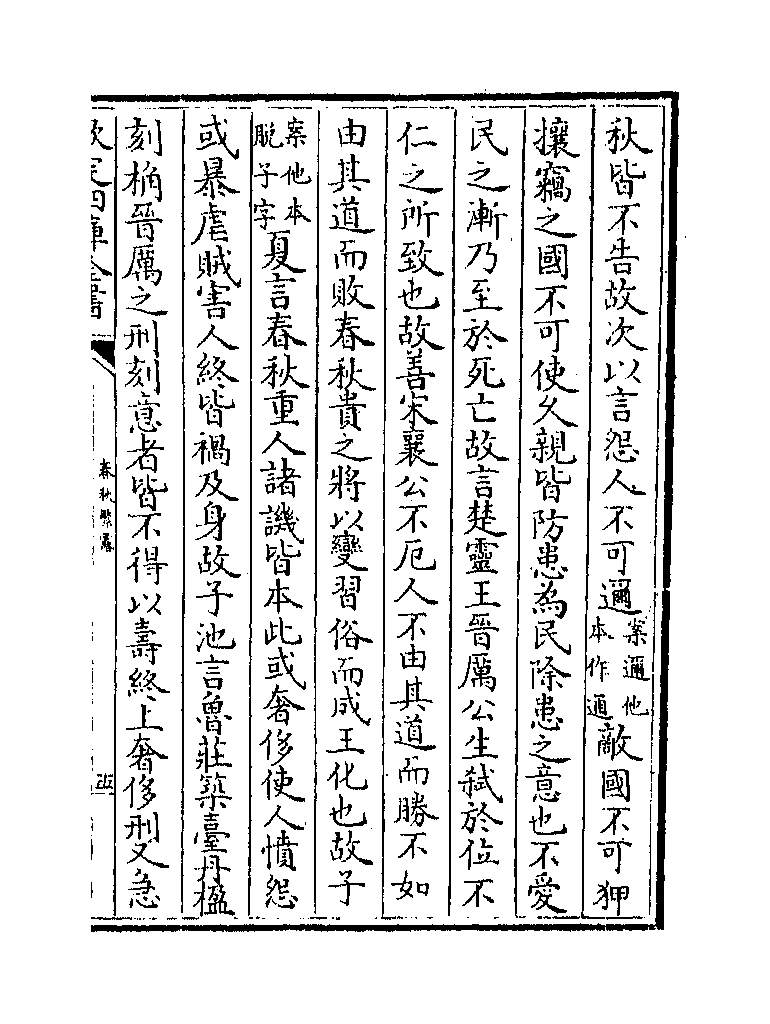 秋皆不告故次以言怨人不可邇案邇他本作通敵國不可狎
攘竊之國不可使久親皆防患為民除患之意也不愛
民之漸乃至於死亡故言楚靈王晉厲公生弑於位不
仁之所致也故善宋襄公不厄人不由其道而勝不如
由其道而敗春秋貴之將以變習俗而成王化也故子
案他本脫子字夏言春秋重人諸譏皆本此或奢侈使人憤怨
或暴虐賊害人終皆禍及身故子池言魯莊築臺丹楹
刻桷晉厲之刑刻意者皆不得以壽終上奢侈刑又急
欽定四庫全書
春秋繁露